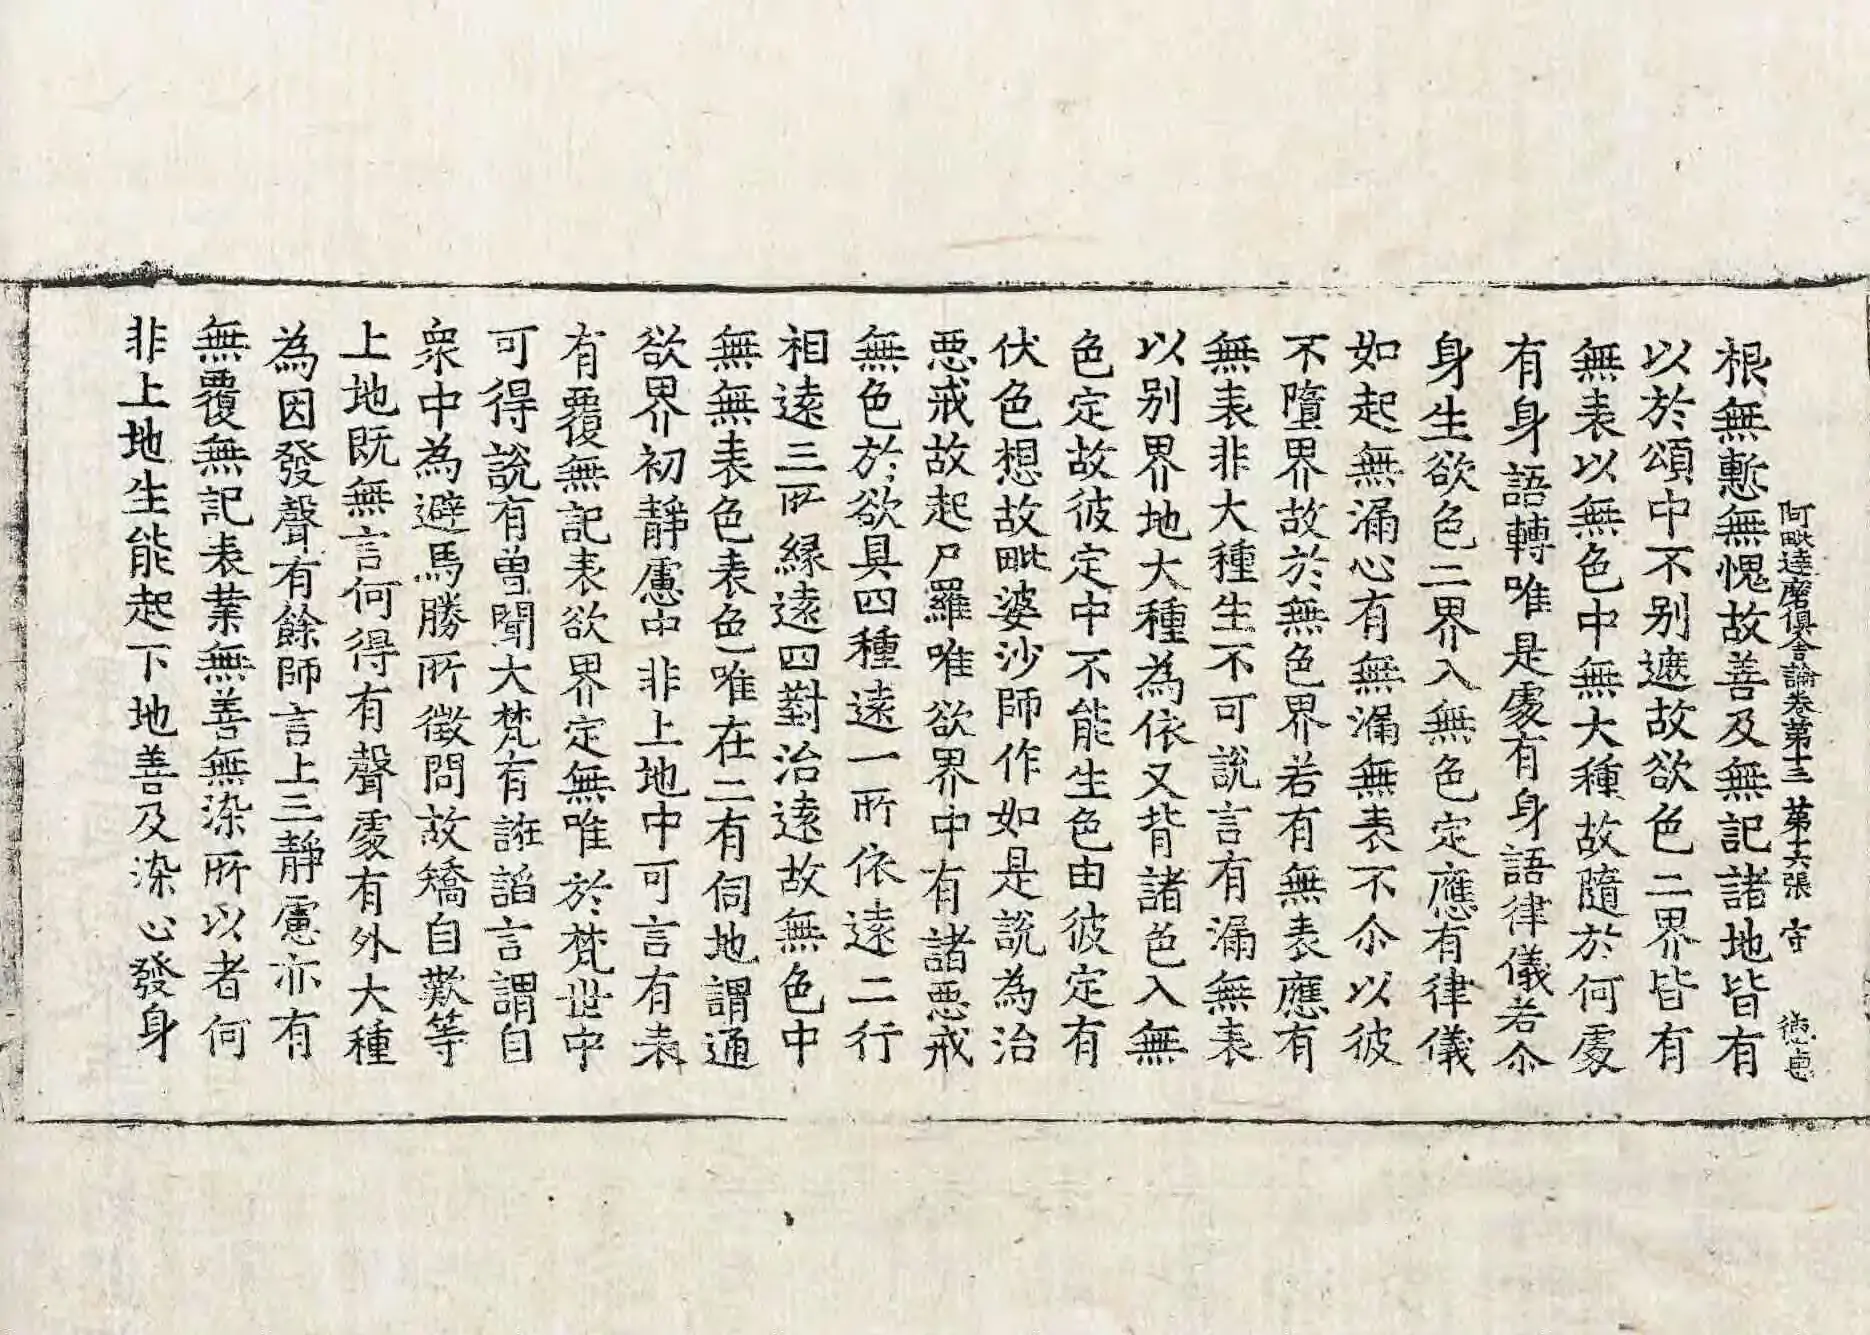 阿毗達磨俱舍論卷第十三　第十六張　寺　德貞
根無慙無愧故善及無記諸地皆有
以於頌中不别遮故欲色二界皆有
無表以無色中無大種故隨於何處
有身語轉唯是處有身語律儀若尒
身生欲色二界入無色定應有律儀
如起無漏心有無漏無表不尒以彼
不墮界故於無色界若有無表應有
無表非大種生不可說言有漏無表
以别界地大種為依又背諸色入無
色定故彼定中不能生色由彼定有
伏色想故毗婆沙師作如是說為治
惡戒故起尸羅唯欲界中有諸惡戒
無色於欲具四種遠一所依遠二行
相遠三所緣遠四對治遠故無色中
無無表色表色唯在二有伺地謂通
欲界初靜慮中非上地中可言有表
有覆無記表欲界定無唯於梵世中
可得說有曾聞大梵有誑諂言謂自
衆中為避馬勝所徵問故矯自歎等
上地既無言何得有聲處有外大種
為因發聲有餘師言上三靜慮亦有
無覆無記表業無善無染所以者何
非上地生能起下地善及染心發身